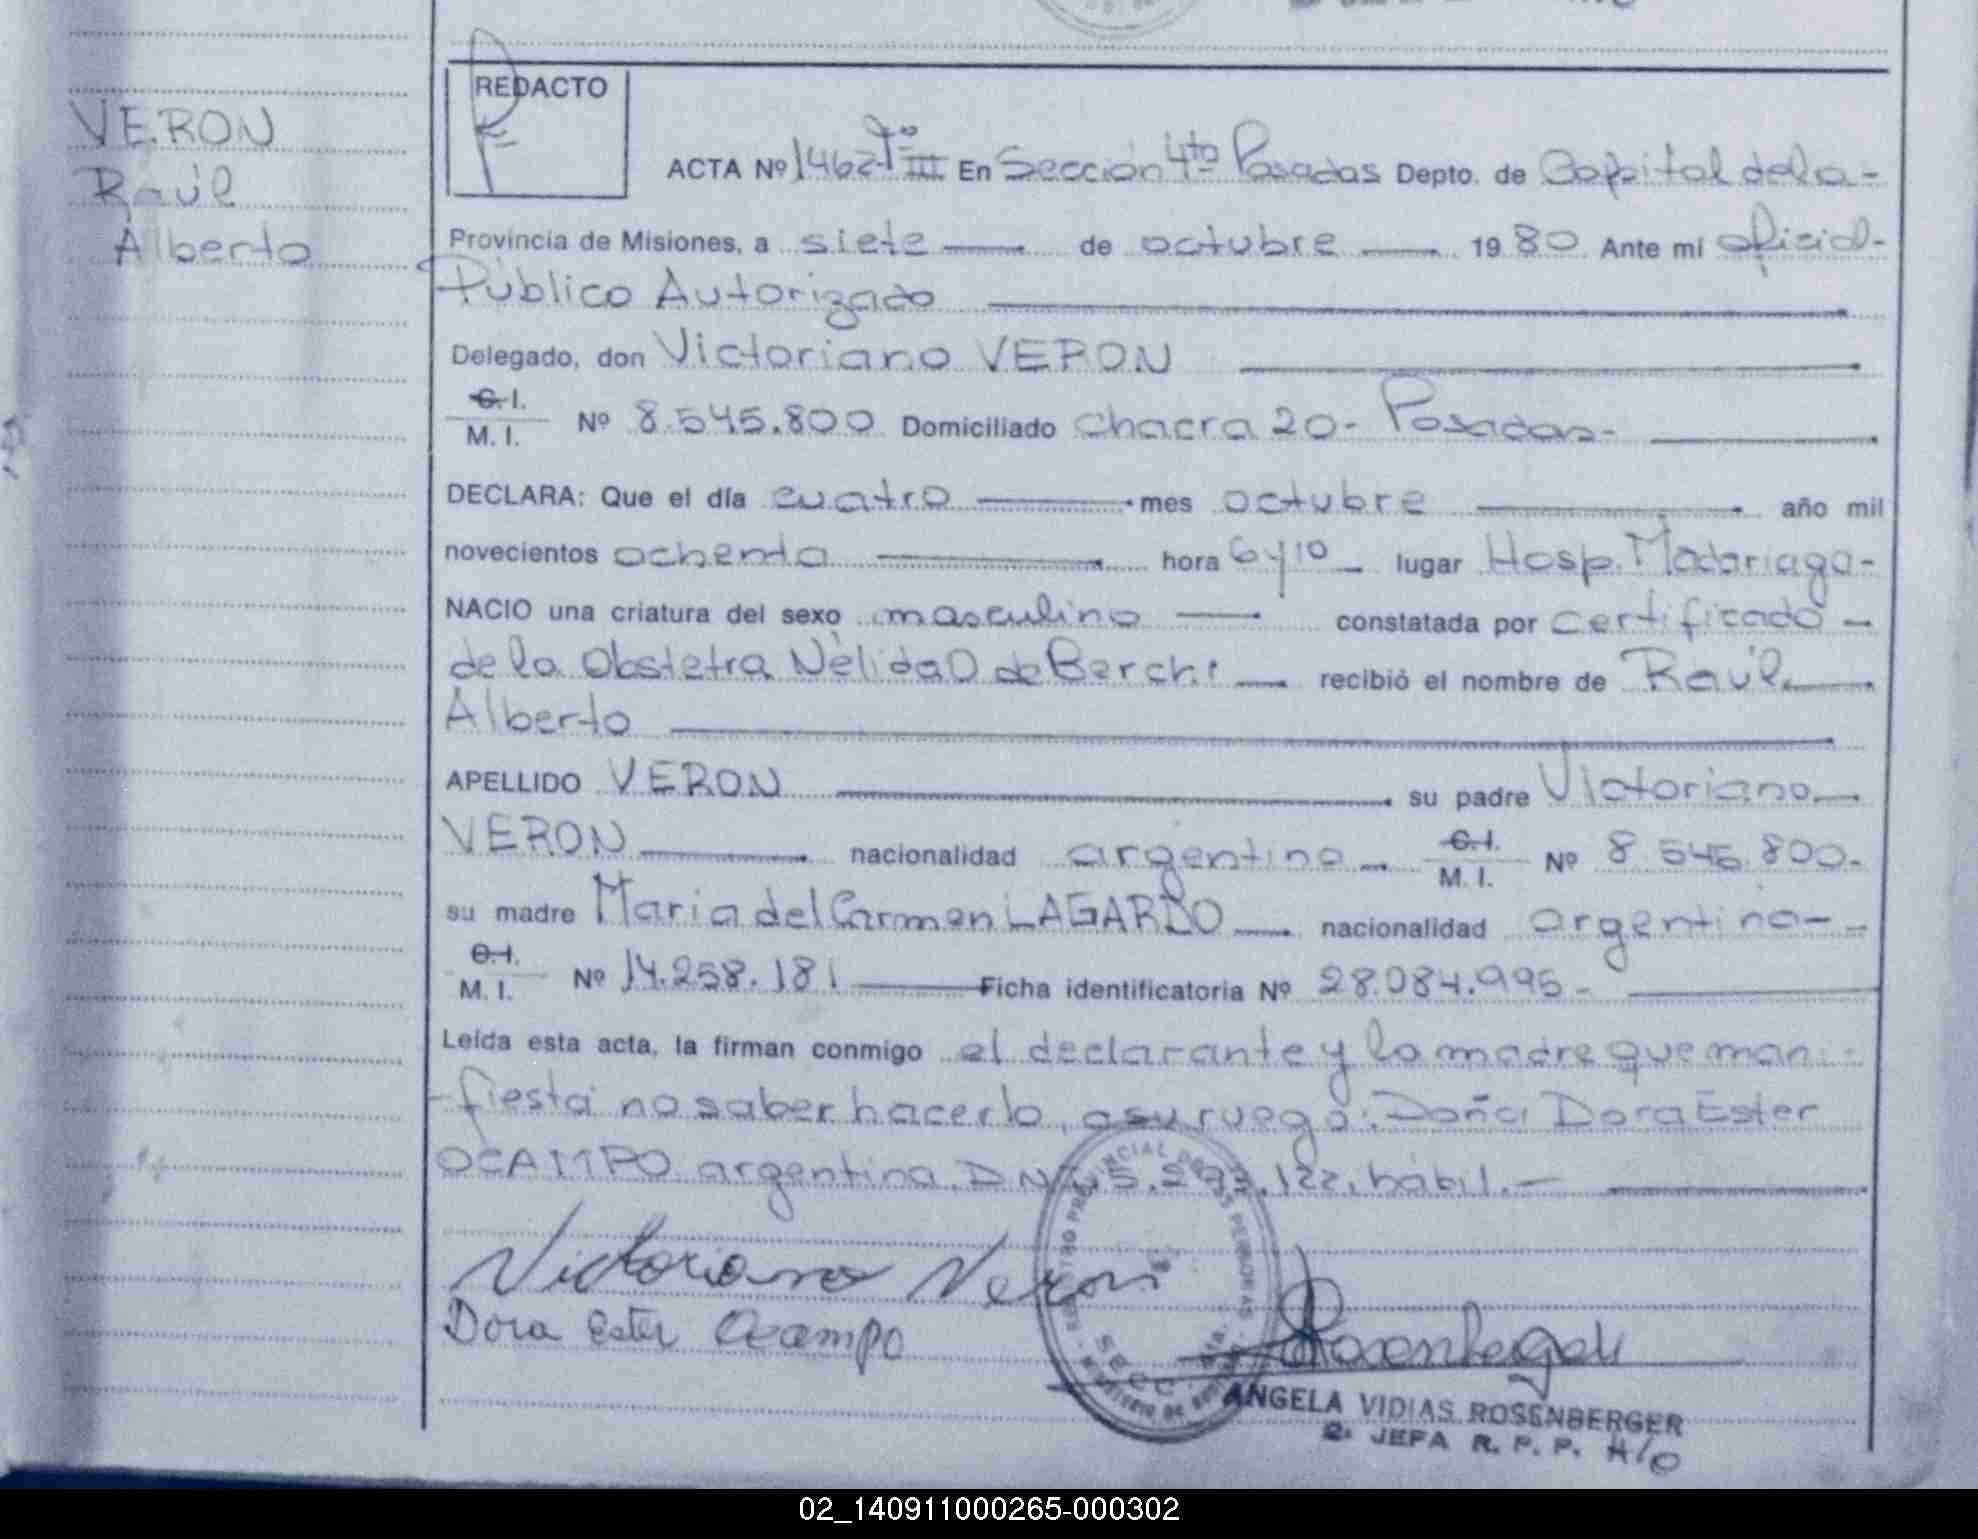 VERON
Raúl
Alberto
REDACTO
ACTA Nº 1462 Tº III En Sección 4ta Posadas Depto. de Capital de la -
Provincia de Misiones, a siete de octubre 1980 Ante mí oficial -
Público Autorizado
Delegado, don Victoriano VERON
C. I.
M. I. Nº 8.545.800 Domiciliado Chacra 20 - Posadas -
DECLARA: Que el día cuatro mes octubre año mil
novecientos ochenta hora 6 y 10 lugar Hosp. Madariaga -
NACIO una criatura del sexo masculino constatada por certificado -
de la Obstetra Nélida D de Berchi recibió el nombre de Raúl
Alberto
APELLIDO VERON su padre Victoriano
VERON nacionalidad argentino C. I.
M. I. Nº 8 545 800 -
su madre Maria del Carmen LAGARDO nacionalidad argentina -
C. I.
M. I. Nº 14.258.181 Ficha identificatoria Nº 28.084.995 -
Leída esta acta, la firman conmigo el declarante y la madre que mani -
- fiesta no saber hacerlo, a su ruego: Doña Dora Ester
OCAMPO argentina, DNI 5.273.122, hábil. -
Victoriano Veron
Dora Ester Ocampo
REGISTRO PROVINCIAL DE LAS PERSONAS
SECC.
ANGELA VIDIAS ROSENBERGER
2ª JEFA R. P. P. A/C
02_140911000265-000302